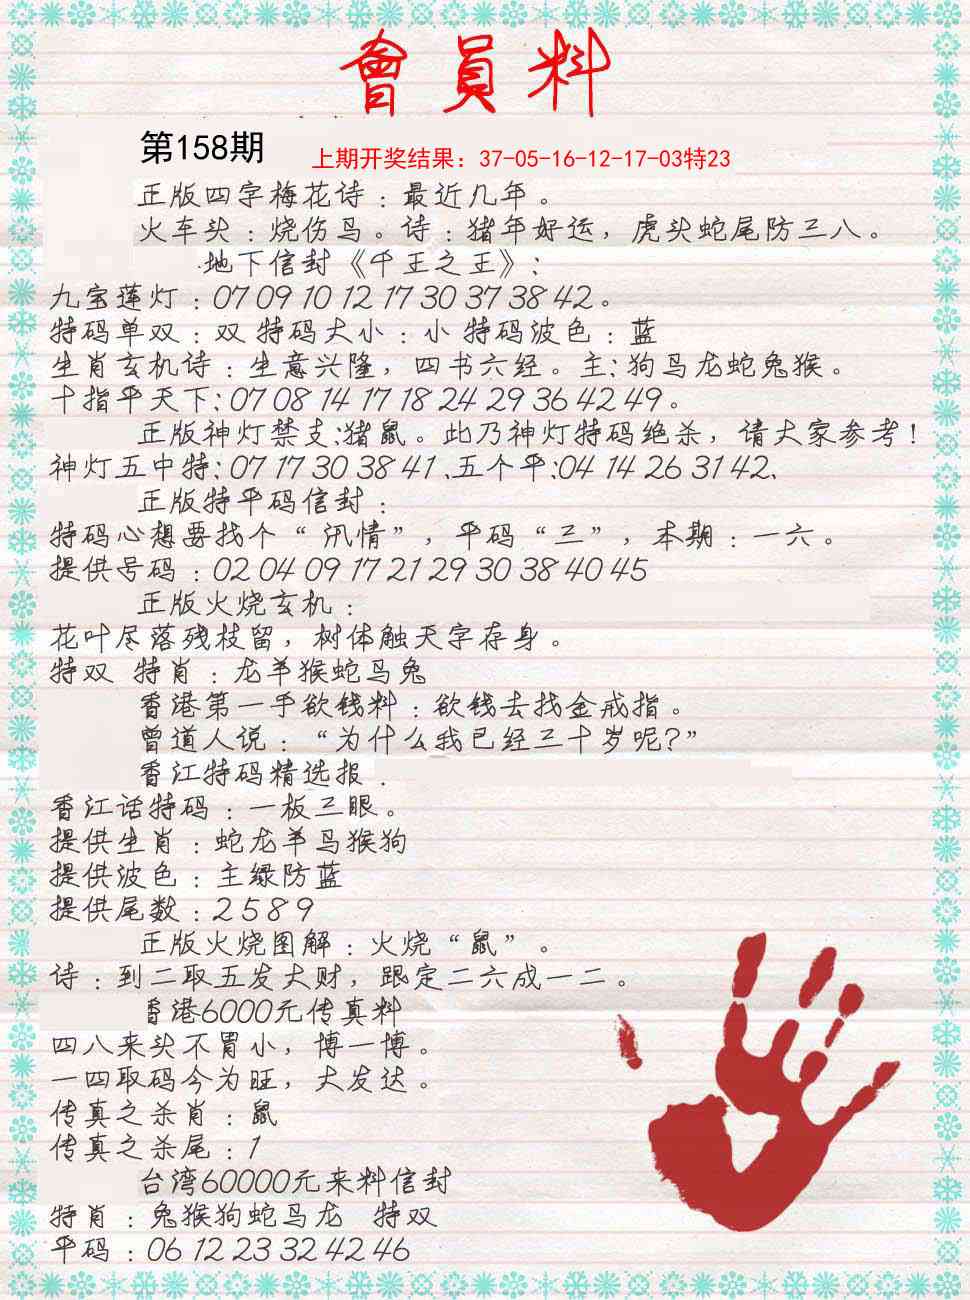 會員料
第158期
上期开奖结果：37-05-16-12-17-03特23
正版四字梅花诗：最近几年。
火车头：烧伤鸟。诗：猪年好运，虎头蛇尾防三八。
地下信封《千王之王》：
九宝莲灯：07 09 10 12 17 30 37 38 42。
特码单双：双 特码大小：小 特码波色：蓝
生肖玄机诗：生意兴隆，四书六经。主：狗马龙蛇兔猴。
十指平天下：07 08 14 17 18 24 29 36 42 49。
正版神灯禁支：猪鼠。此乃神灯特码绝杀，请大家参考！
神灯五中特：07 17 30 38 41 .五个平：04 14 26 31 42.
正版特平码信封：
特码心想要找个“汛情”，平码“三”，本期：一六。
提供号码：02 04 09 17 21 29 30 38 40 45
正版火烧玄机：
花叶尽落残枝留，树体触天字存身。
特双 特肖：龙羊猴蛇马兔
香港第一手欲钱料：欲钱去找金戒指。
曾道人说：“为什么我已经三十岁呢?”
香江特码精选报．
香江话特码：一板三眼。
提供生肖：蛇龙羊马猴狗
提供波色：主绿防蓝
提供尾数：2 5 8 9
正版火烧图解：火烧“鼠”。
诗：到二取五发大财，跟定二六成一二。
香港6000元传真料
四八来头不胃小，博一博。
一四取码今为旺，大发达。
传真之杀肖：鼠
传真之杀尾：1
台湾60000元来料信封
特肖：兔猴狗蛇马龙 特双
平码：06 12 23 32 42 46